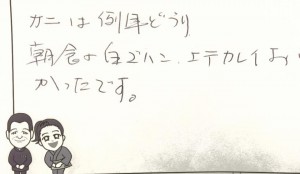 カニは例年どうり
朝食の白ゴハン、エテカレイよ
かったです。